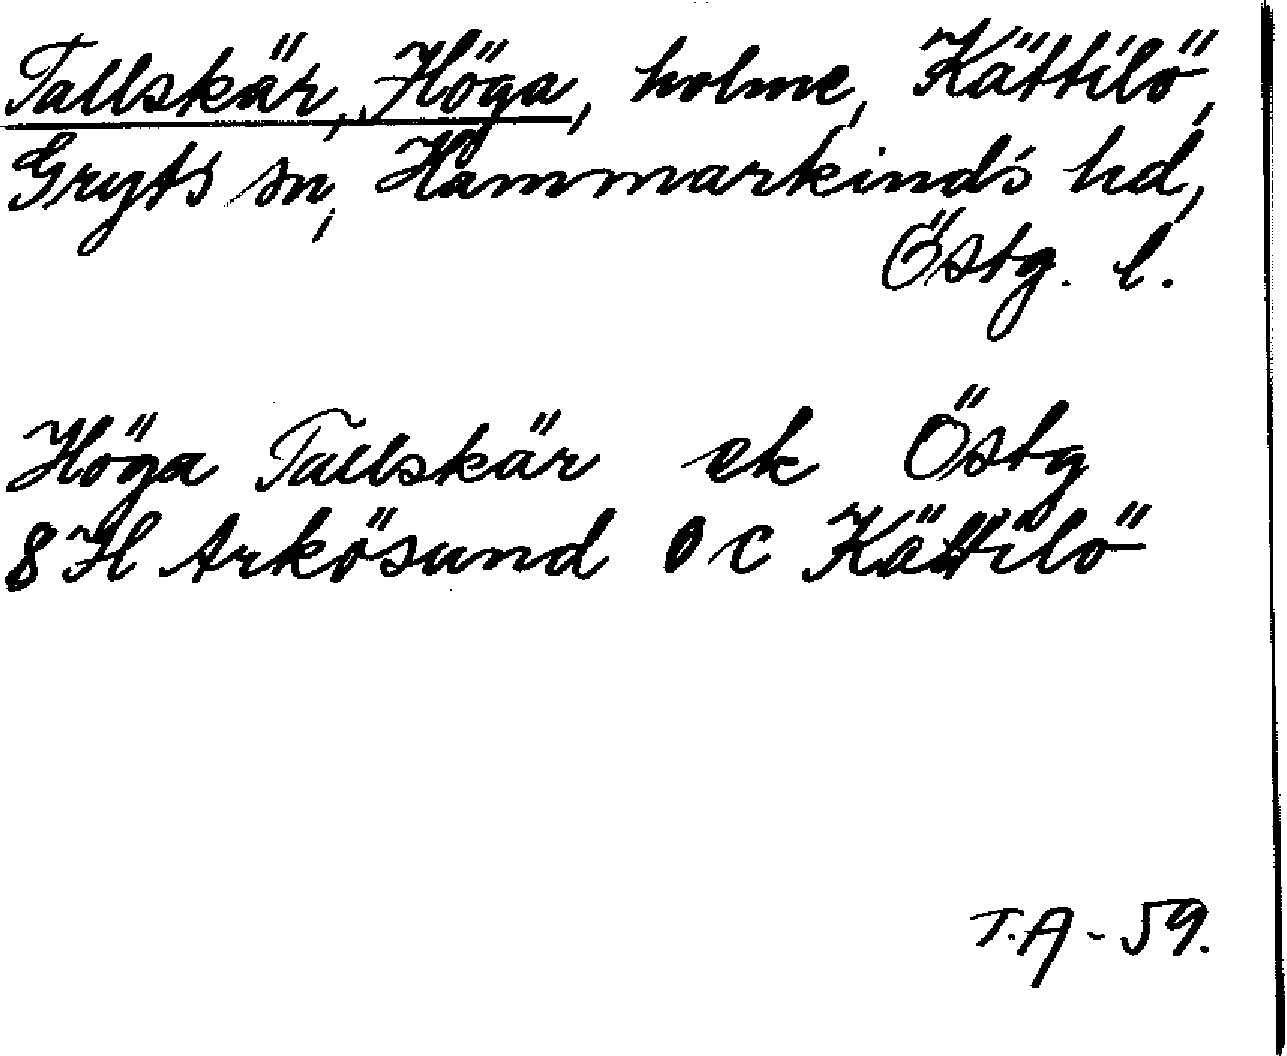 Tallskär, Höga, holme, Kättilö,
Gryts sn, Hammarkinds hd,
Östg. l.
Höga Tallskär ek Östg
8 H Arkösund 0 c Kättilö
T.A - 59.